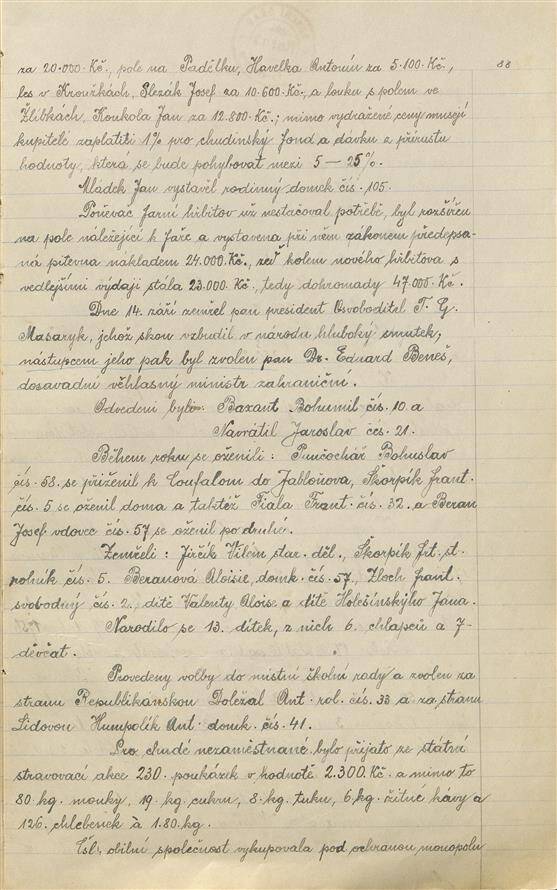 88
za 20.000 Kč., pole na Padělku, Havelka Antonín za 5.100 Kč.,
les v Kroužkách, Slezák Josef za 10.600 Kč., a louku s polem ve
Žlíbkách, Koukola Jan za 12.800 Kč.; mimo vydražené ceny musejí
kupitelé zaplatiti 1% pro chudinský fond a dávku z přírustu
hodnoty, která se bude pohybovat mezi 5 – 25%.
Mládek Jan vystavěl rodinný domek čís. 105.
Poněvač farní hřbitov už nestačoval potřebě, byl rozšířen
na pole náležející k faře a vystavena při něm zákonem předepsa-
ná pitevna nákladem 24.000 Kč., zeď kolem nového hřbitova s
vedlejšími výdaji stála 23.000 Kč., tedy dohromady 47.000 Kč.
Dne 14. září zemřel pan president Osvoboditel T. G.
Masaryk, jehož skon vzbudil v národu hluboký smutek,
nástupcem jeho pak byl zvolen pan Dr. Eduard Beneš,
dosavadní věhlasný ministr zahraniční.
Odvedeni byli: Baxant Bohumil čís. 10 a
Navrátil Jaroslav čís. 21.
Během roku se oženili: Punčochář Bohuslav
čís. 58. se přiženil k Coufalom do Jabloňova, Škorpík Frant.
čís. 5 se oženil doma a taktéž Fiala Frant. čís. 32. a Beran
Josef vdovec čís. 57 se oženil po druhé.
Zemřeli: Jiřčík Vilém star. děl., Škorpík Frt. st.
rolník čís. 5. Beranová Aloisie, domk. čís. 57, Zloch Frant.
svobodný čís. 2, dítě Valenty Aloise a dítě Holešinského Jana.
Narodilo se 13. dítek, z nich 6. chlapců a 7-
děvčat.
Provedeny volby do místní školní rady a zvolen za
stranu Republikánskou Doležal Ant. rol. čís. 33 a za stranu
Lidovou Humpolík Ant. domk. čís. 41.
Pro chudé nezaměstnané bylo přijato ze státní
stravovací akce 230. poukázek v hodnotě 2.300 Kč. a mimo to
80. kg. mouky, 19. kg. cukru, 8. kg. tuku, 6. kg. žitné kávy a
126. chlebenek à 1.80. kg.
Čsl. obilní společnost vykupovala pod ochranou monopolu